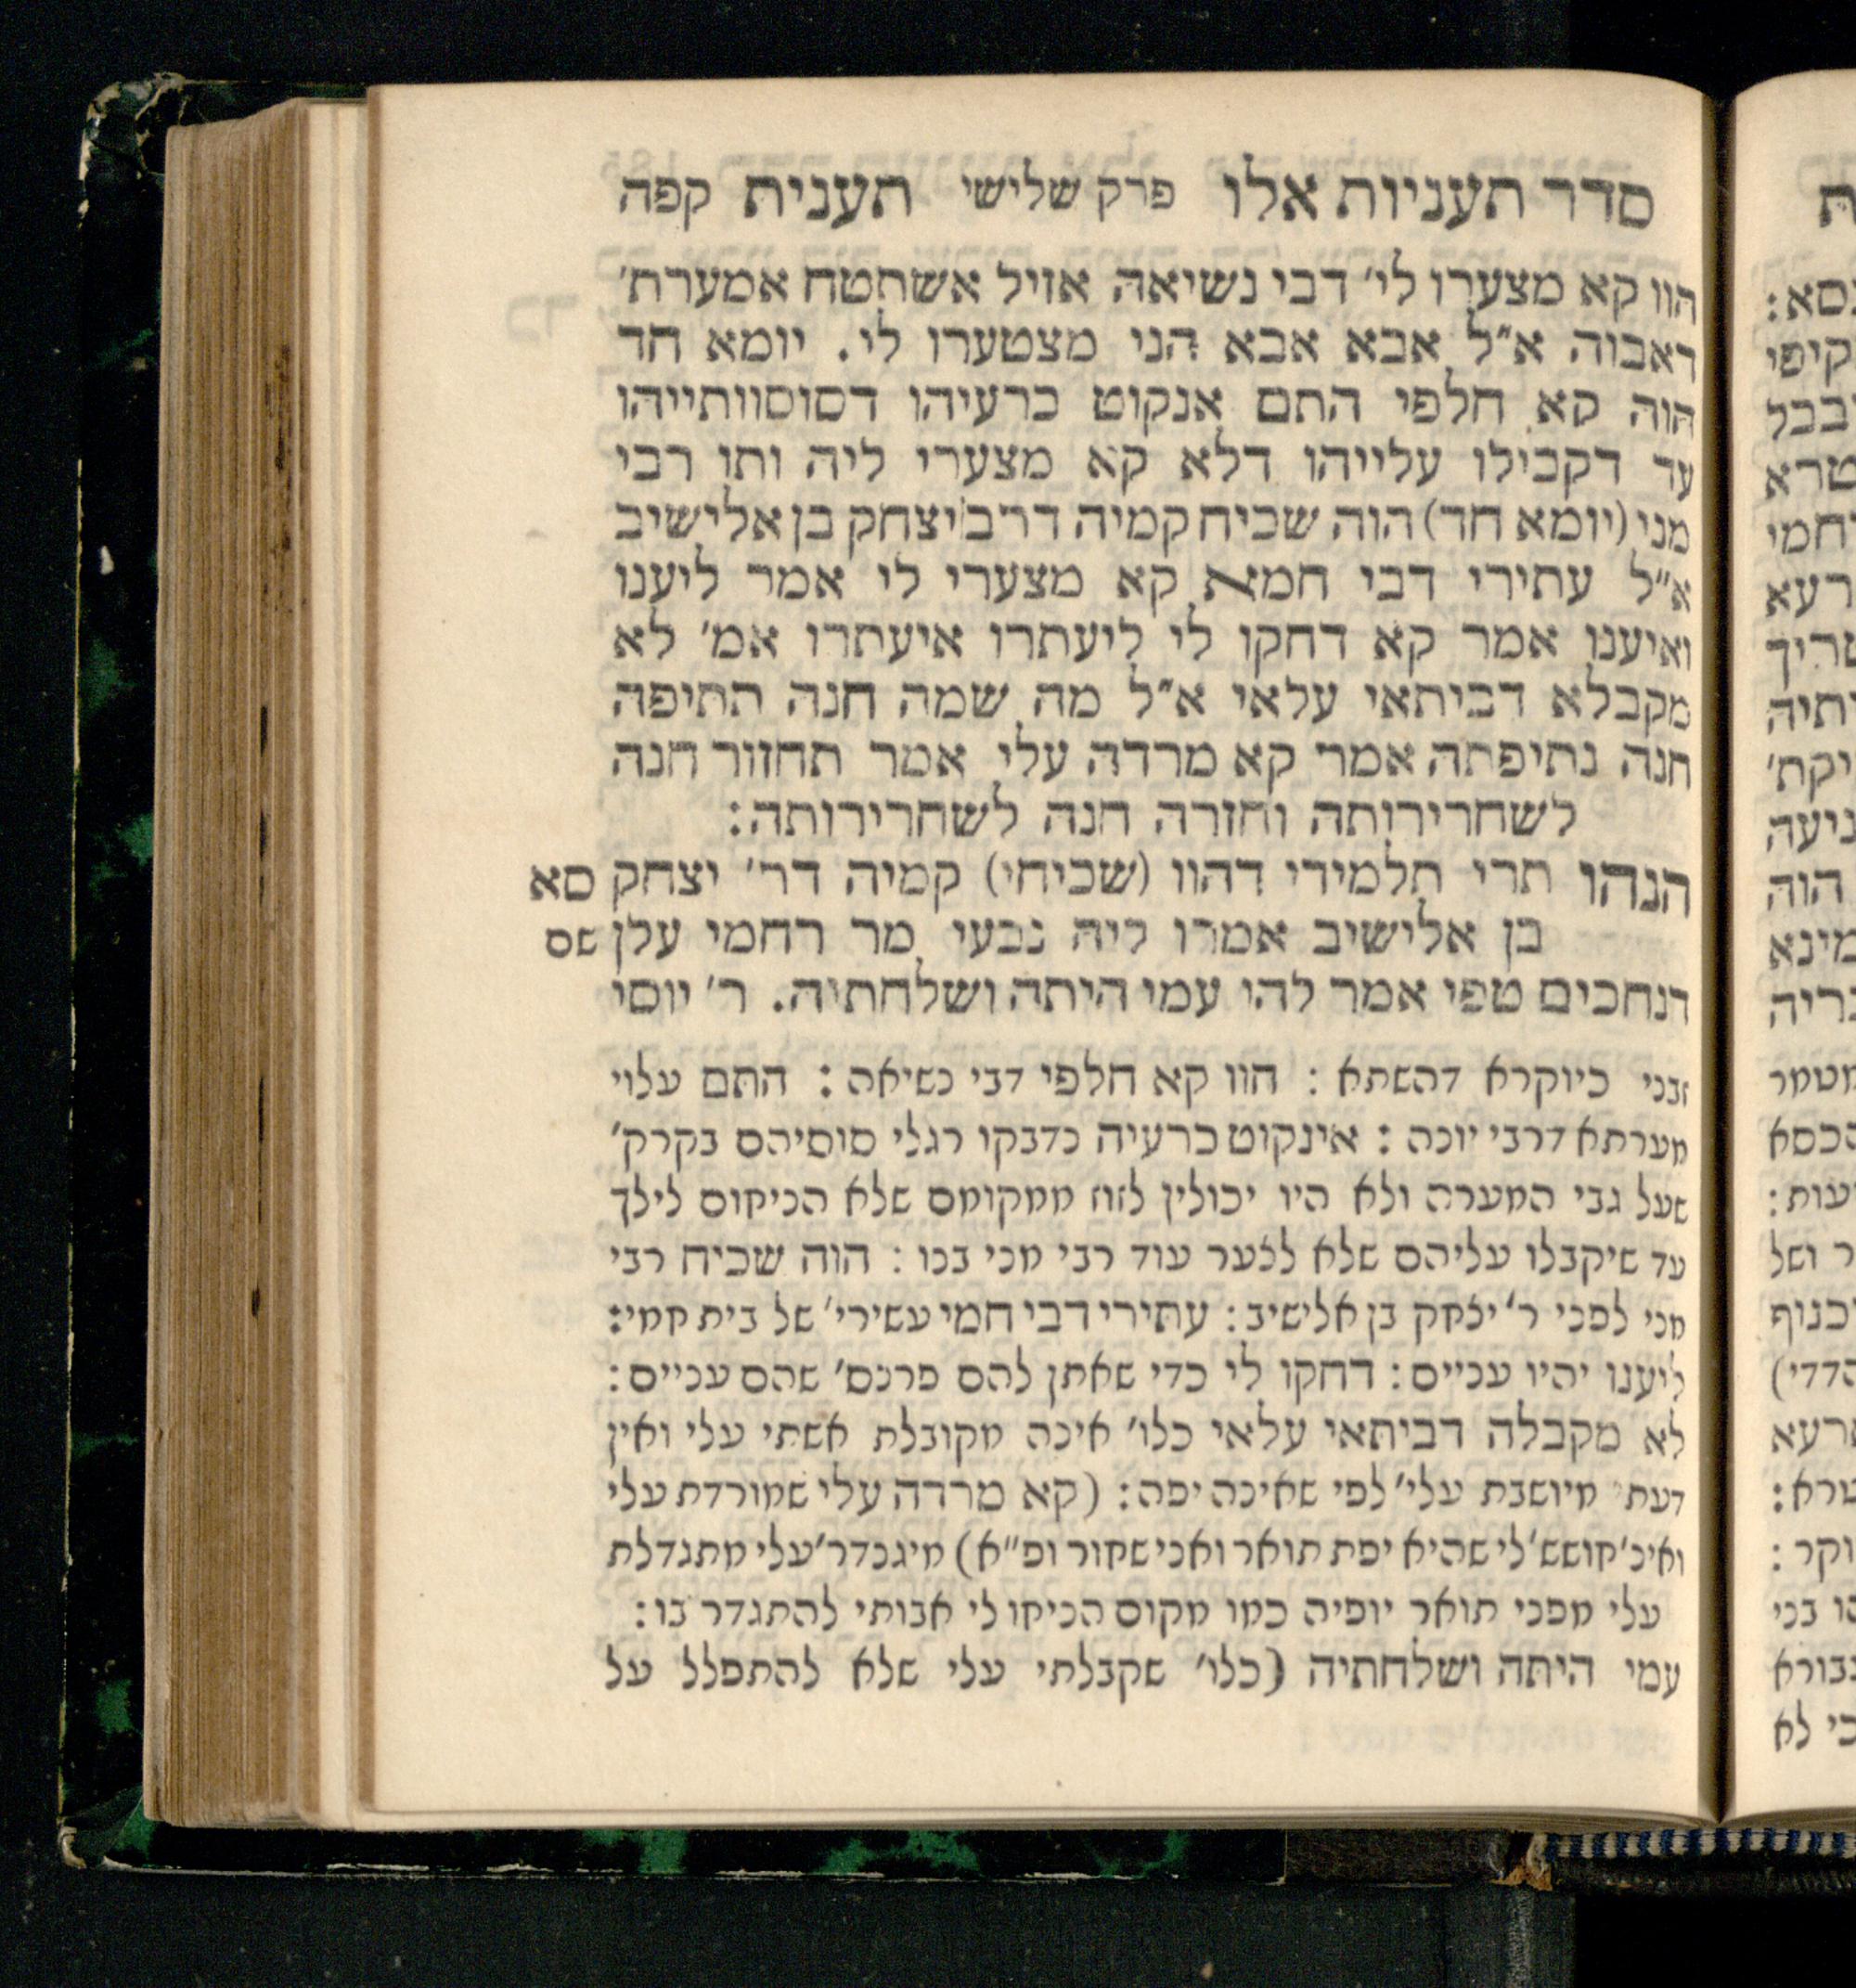 סדר תעניות אלו פרק שלישי תענית קפה
הוו קא מצערו לי׳ דבי נשיאה אזיל אשתטח אמערת׳
דאבוה א״ל אבא אבא הני מצטערו לי. יומא חד
הוה קא חלפי התם אנקוט כרעיהו דסוסוותייהו
עד דקבילו עלייהו דלא קא מצערי ליה ותו רבי
מני (יומא חד) הוה שכיח קמיה דרב יצחק בן אלישיב
א״ל עתירי דבי חמא קא מצערי לי אמר ליענו
ואיענו אמר קא דחקו לי ליעתרו איעתרו אמ׳ לא
מקבלא דביתאי עלאי א״ל מה שמה חנה תתיפה
חנה נתיפתה אמר קא מרדה עלי אמר תחזור חנה
לשחרירותה וחזרה חנה לשחרירותה:
הנהו תרי תלמידי דהוו (שכיחי) קמיה דר׳ יצחק סא
בן אלישיב אמרו ליה נבעי מר רחמי עלן שם
דנחכים טפי אמר להו עמי היתה ושלחתיה. ר׳ יוסי
זבני ביוקרא דהשתא : הוו קא חלפי דבי נשיאה : התם עלוי
מערתא דרבי יונה : אינקוט כרעיה נדבקו רגלי סוסיהם בקרק׳
שעל גבי המערה ולא היו יכולין לזוז ממקומם שלא הניחום לילך
עד שיקבלו עליהם שלא לצער עוד רבי מני בנו : הוה שכיח רבי
מני לפני ר׳ יצחק בן אלישיב : עתירי דבי חמי עשירי׳ של בית חמי:
ליענו יהיו עניים: דחקו לי כדי שאתן להם פרנס׳ שהם עניים:
לא מקבלה דביתאי עלאי כלו׳ אינה מקובלת אשתי עלי ואין
דעת׳ מיושבת עלי׳ לפי שאינה יפה: (קא מרדה עלי שמורדת עלי
ואינ׳ חושש׳ לי שהיא יפת תואר ואני שחור ופ״א) מיגנדר׳ עלי מתגדלת
עלי מפני תואר יופיה כמו מקום הניחו לי אבותי להתגדר בו:
עמי היתה ושלחתיה (כלו׳ שקבלתי עלי שלא להתפלל על